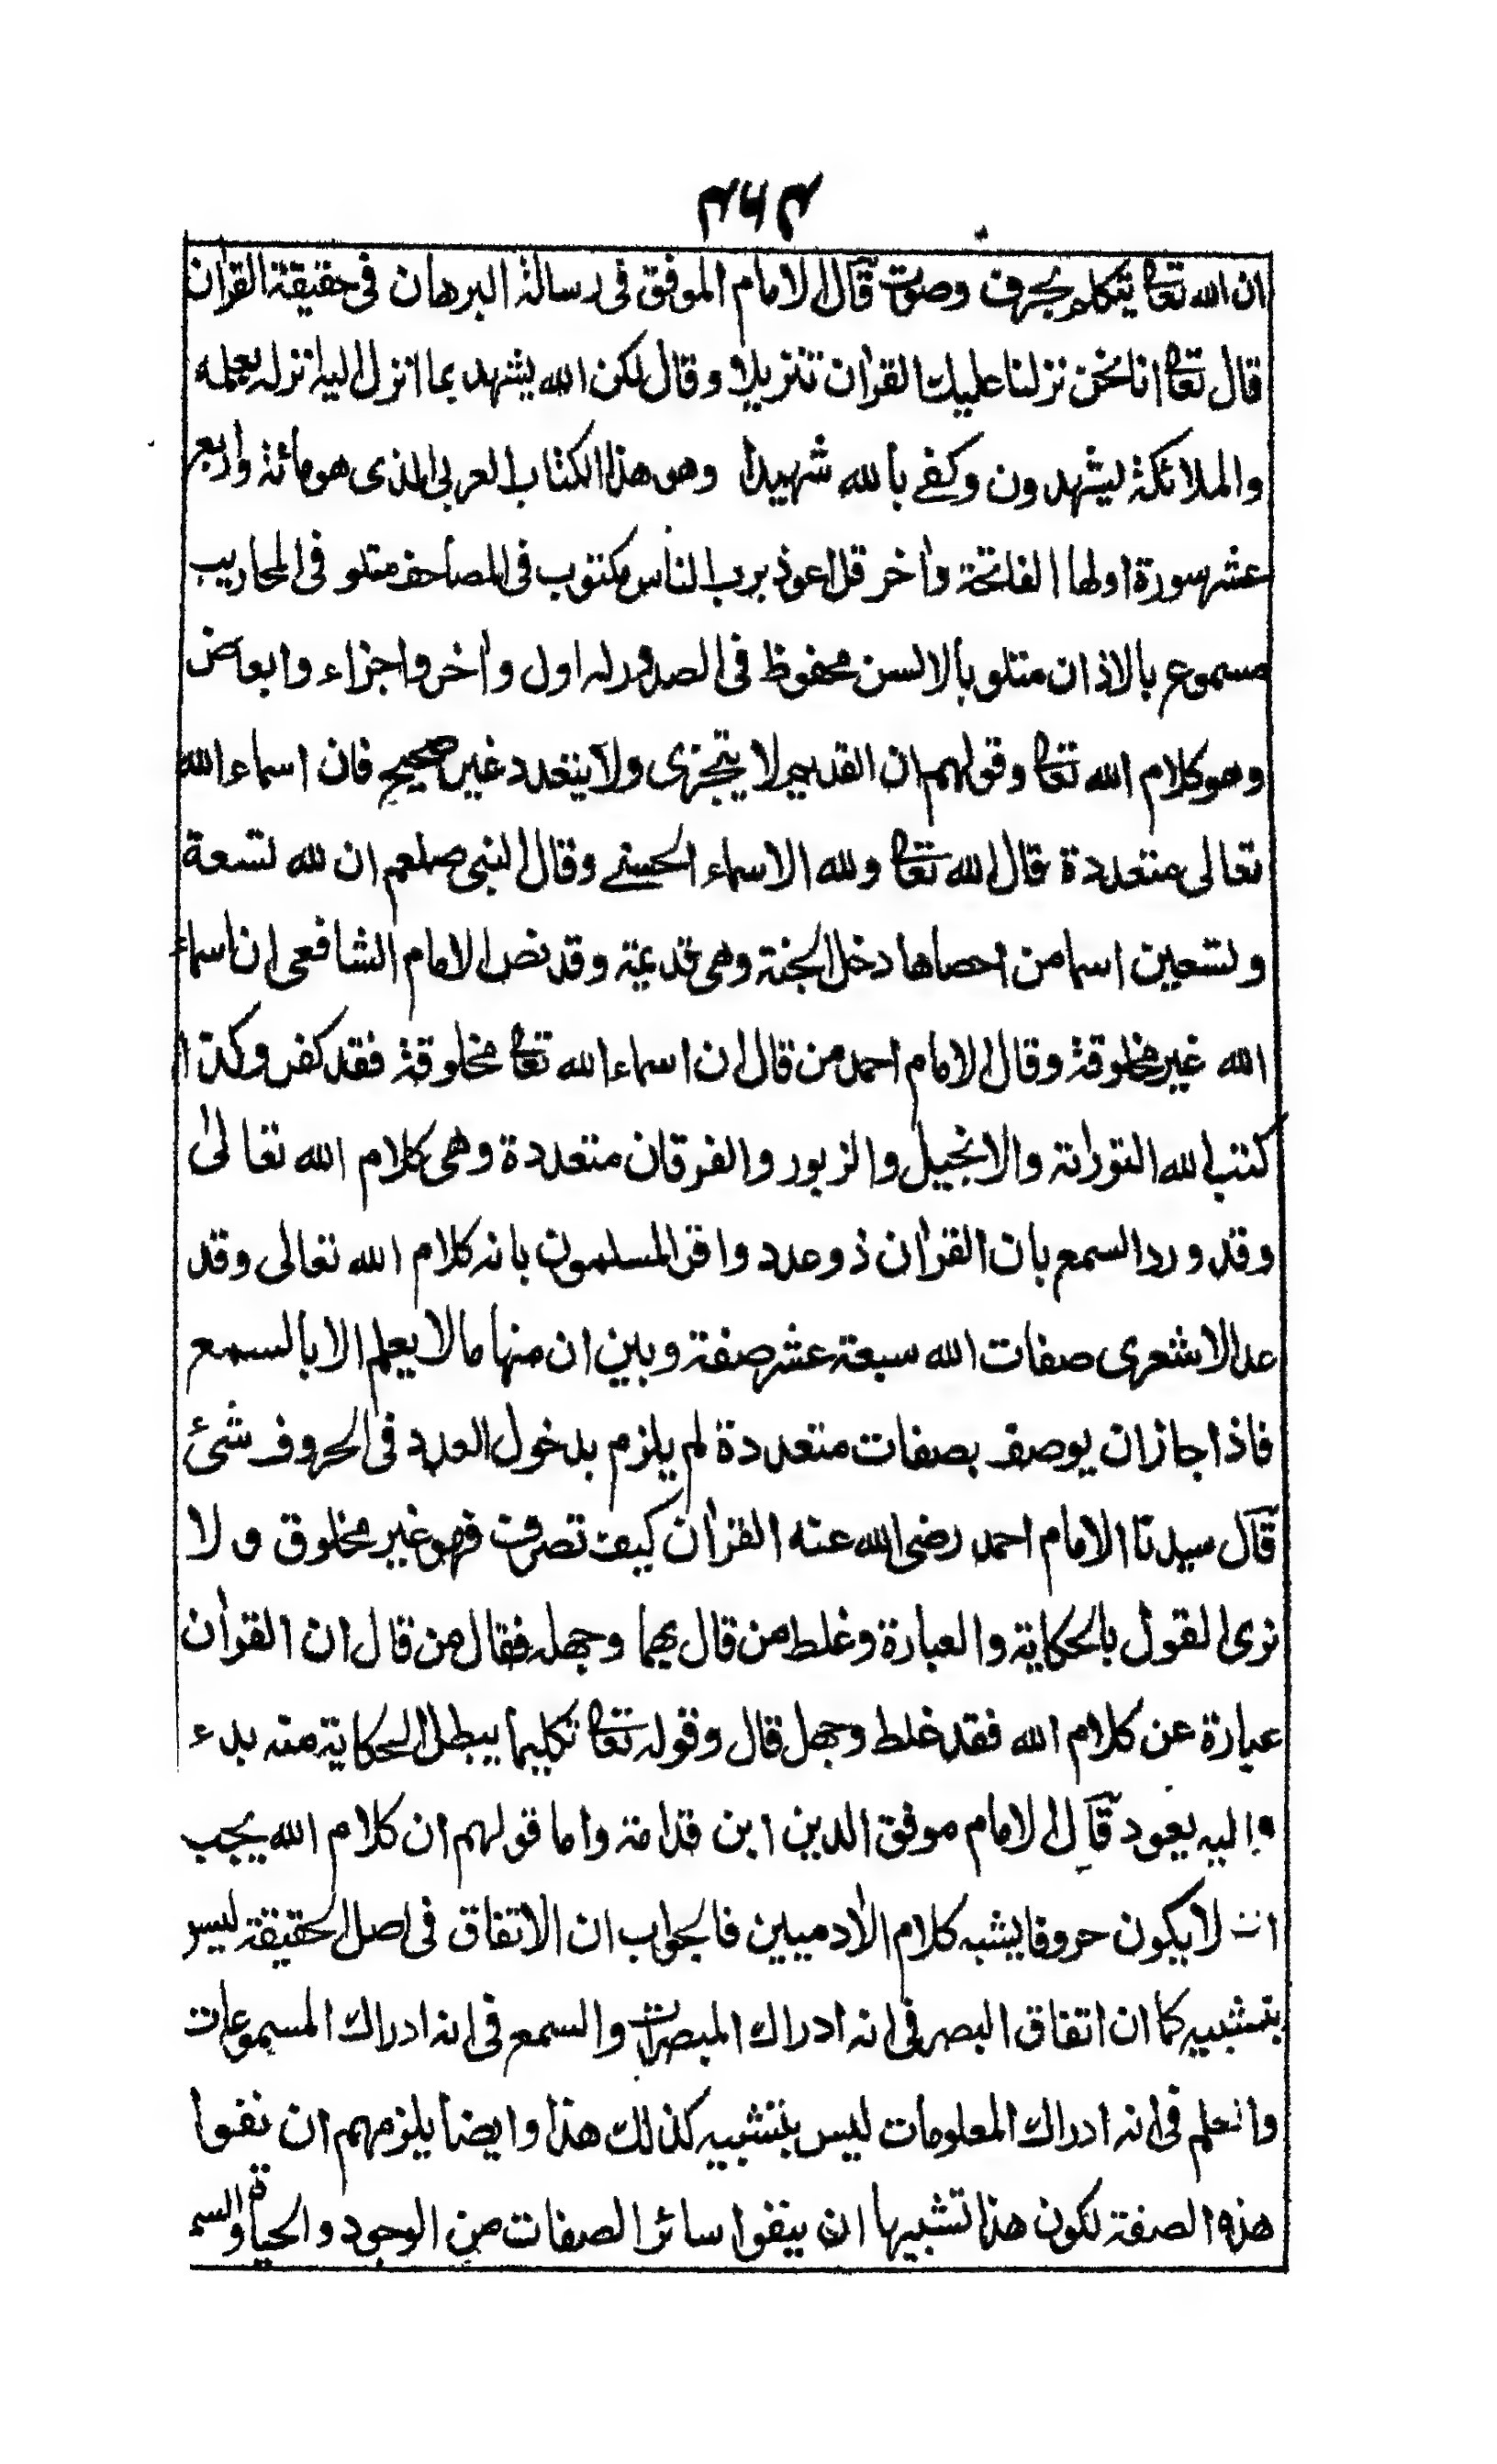 ۴۶۴
ان الله تعا يتكلم بحرف وصوت قال الامام الموفق فى رسالة البرهان فى حقيقة القرآن
قال تعا انا نحن نزلنا عليك القرآن تنزيلا وقال لكن الله يشهد بما انزل اليه انزله بعلمه
والملائكة يشهدون وكفى بالله شهيدا وهو هذا الكتاب العربى الذى هو مائة واربع
عشر سورة اولها الفاتحة وآخر قل اعوذ برب الناس مكتوب فى المصاحف متلو فى المحاريب
مسموع بالاذان متلو بالالسن محفوظ فى الصدور له اول وآخر واجزاء وابعاض
وهو كلام الله تعا وقولهم ان القديم لا يتجزى ولا يتعدد غير صحيح فان اسماء الله
تعالى متعددة قال الله تعا ولله الاسماء الحسنى وقال النبى صلعم ان لله تسعة
وتسعين اسما من احصاها دخل الجنة وهى قديمة وقد نص الامام الشافعى ان اسماء
الله غير مخلوقة وقال الامام احمد من قال ان اسماء الله تعا مخلوقة فقد كفر وكذا
كتب الله التوراتة والانجيل والزبور والفرقان متعددة وهى كلام الله تعالى
وقد ورد السمع بان القرآن ذو عدد واقر المسلمون بانه كلام الله تعالى وقد
عد الاشعرى صفات الله سبعة عشر صفة وبين ان منها ما لا يعلم الا بالسمع
فاذا جاز ان يوصف بصفات متعددة لم يلزم بدخول العدد فى الحروف شئ
قال سيدنا الامام احمد رضى الله عنه القرآن كيف تصرف فهو غير مخلوق ولا
نرى القول بالحكاية والعبارة وغلط من قال بهما وجهله فقال من قال ان القرآن
عبارة عن كلام الله فقد غلط وجهل قال وقوله تعا تكليما يبطل الحكاية منه بدء
واليه يعود قال الامام موفق الدين ابن قدامة واما قولهم ان كلام الله يجب
ان لا يكون حروفا يشبه كلام الآدميين فالجواب ان الاتفاق فى اصل الحقيقة ليس
بتشبيه كما ان اتفاق البصر فى انه ادراك المبصرات والسمع فى انه ادراك المسموعات
والعلم فى انه ادراك المعلومات ليس بتشبيه كذلك هذا وايضا يلزمهم ان نفوا
هذه الصفة لكون هذا تشبيها ان ينفوا سائر الصفات من الوجود والحياة والسم